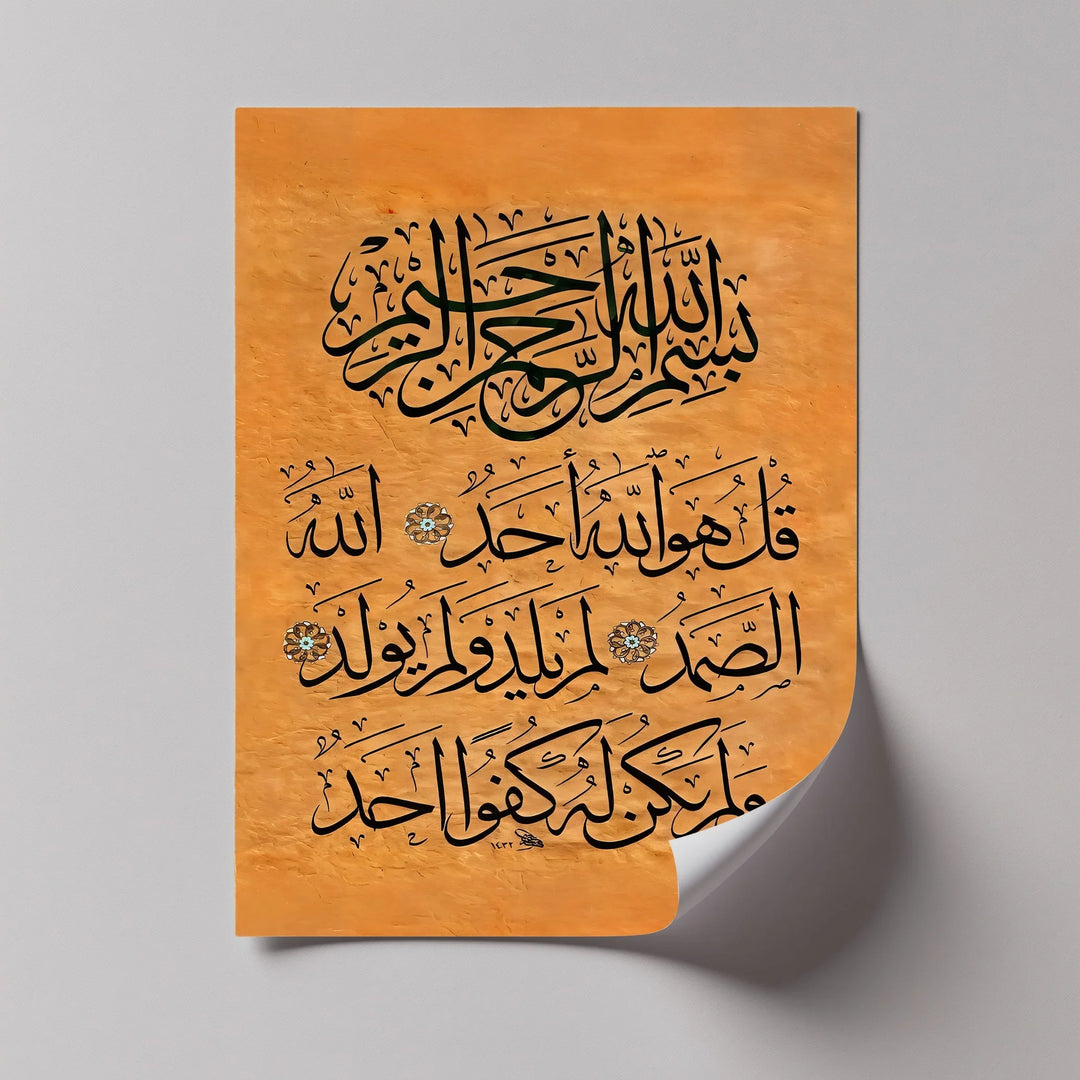 بِسْمِ اللَّهِ الرَّحْمَٰنِ الرَّحِيمِ
قُلْ هُوَ اللَّهُ أَحَدٌ اللَّهُ
الصَّمَدُ لَمْ يَلِدْ وَلَمْ يُولَدْ
وَلَمْ يَكُنْ لَهُ كُفُوًا أَحَدٌ
١٤٣٢